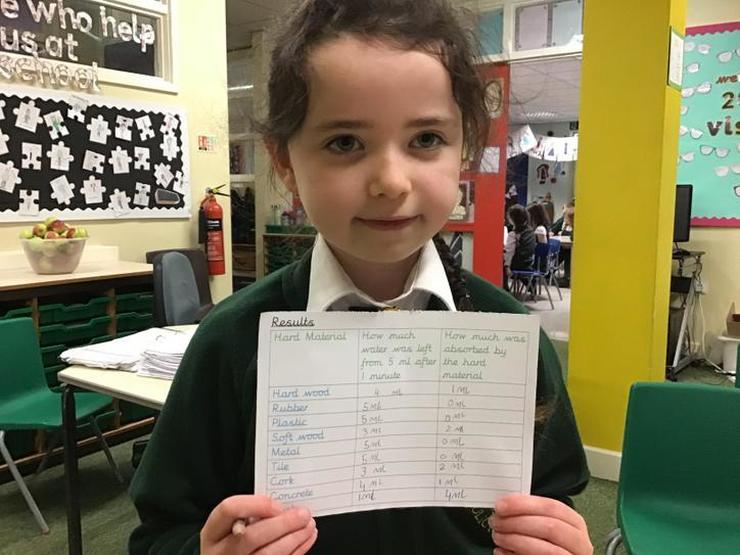 e who help
us at
school
we
2
vis
Results
Hard Material How much water was left from 5 ml after 1 minute How much was absorbed by the hard material
Hard wood 4 ml 1 ml
Rubber 5 ml 0 ml
Plastic 5 ml 0 ml
Soft wood 3 ml 2 ml
Metal 5 ml 0 ml
Tile 5 ml 0 ml
Cork 3 ml 2 ml
Concrete 4 ml 1 ml
1 ml 4 ml